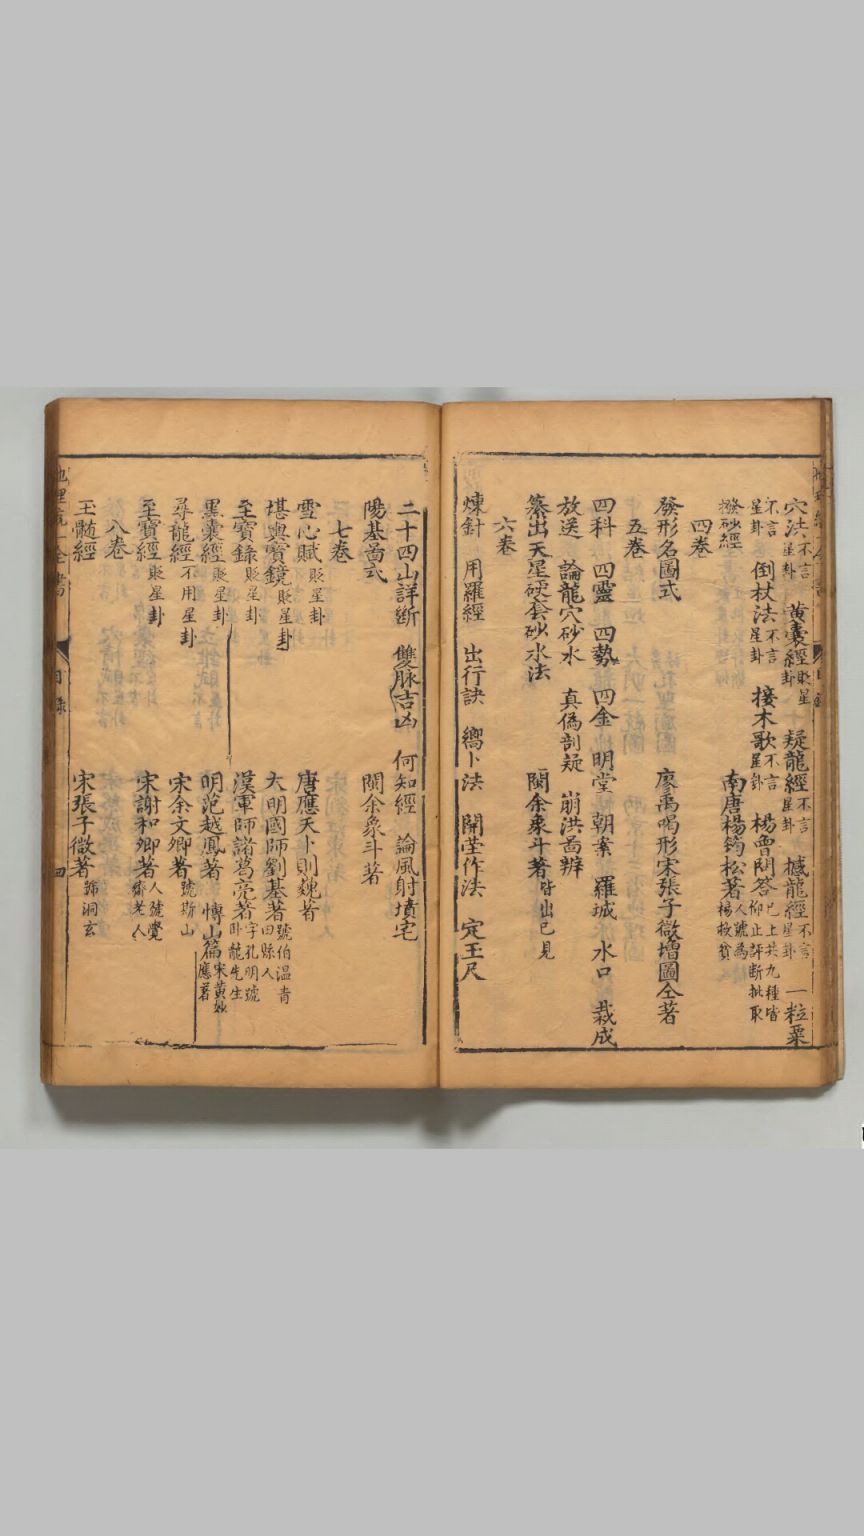 穴法不言星卦 黃囊經貶星卦 疑龍經不言星卦 撼龍經不言星卦 一粒粟
不言星卦 倒杖法不言星卦 接木歌不言星卦 楊曾問答已上共九種皆仰止評斷批取
撥砂經 南唐楊筠松著人號為楊救貧
四卷
發形名圖式 廖禹喝形宋張子微增圖仝著
五卷
四科 四靈 四勢 四金 明堂 朝案 羅城 水口 裁成
放送 論龍穴砂水 真偽剖疑 崩洪啚辨
纂出天星硬套砂水法 閩余象斗著皆出已見
六卷
煉針 用羅經 出行訣 嚮卜法 開塋作法 定玉尺
二十四山詳斷 雙脉吉凶 何知經 論風射墳宅
陽基啚式 閩余象斗著
七卷
雪心賦貶星卦 唐應天卜則巍著
堪輿寶鏡貶星卦 大明國師劉基著號伯溫青田縣人
至寶錄貶星卦 漢軍師諸葛亮著字孔明號卧龍先生
黑囊經貶星卦 明范越鳳著 博山篇宋黃妙應著
尋龍經不用星卦 宋余文卿著號斯山
至寶經貶星卦 宋謝和卿著人號覺齋老人
八卷
玉髓經 宋張子微著號洞玄
目錄
四